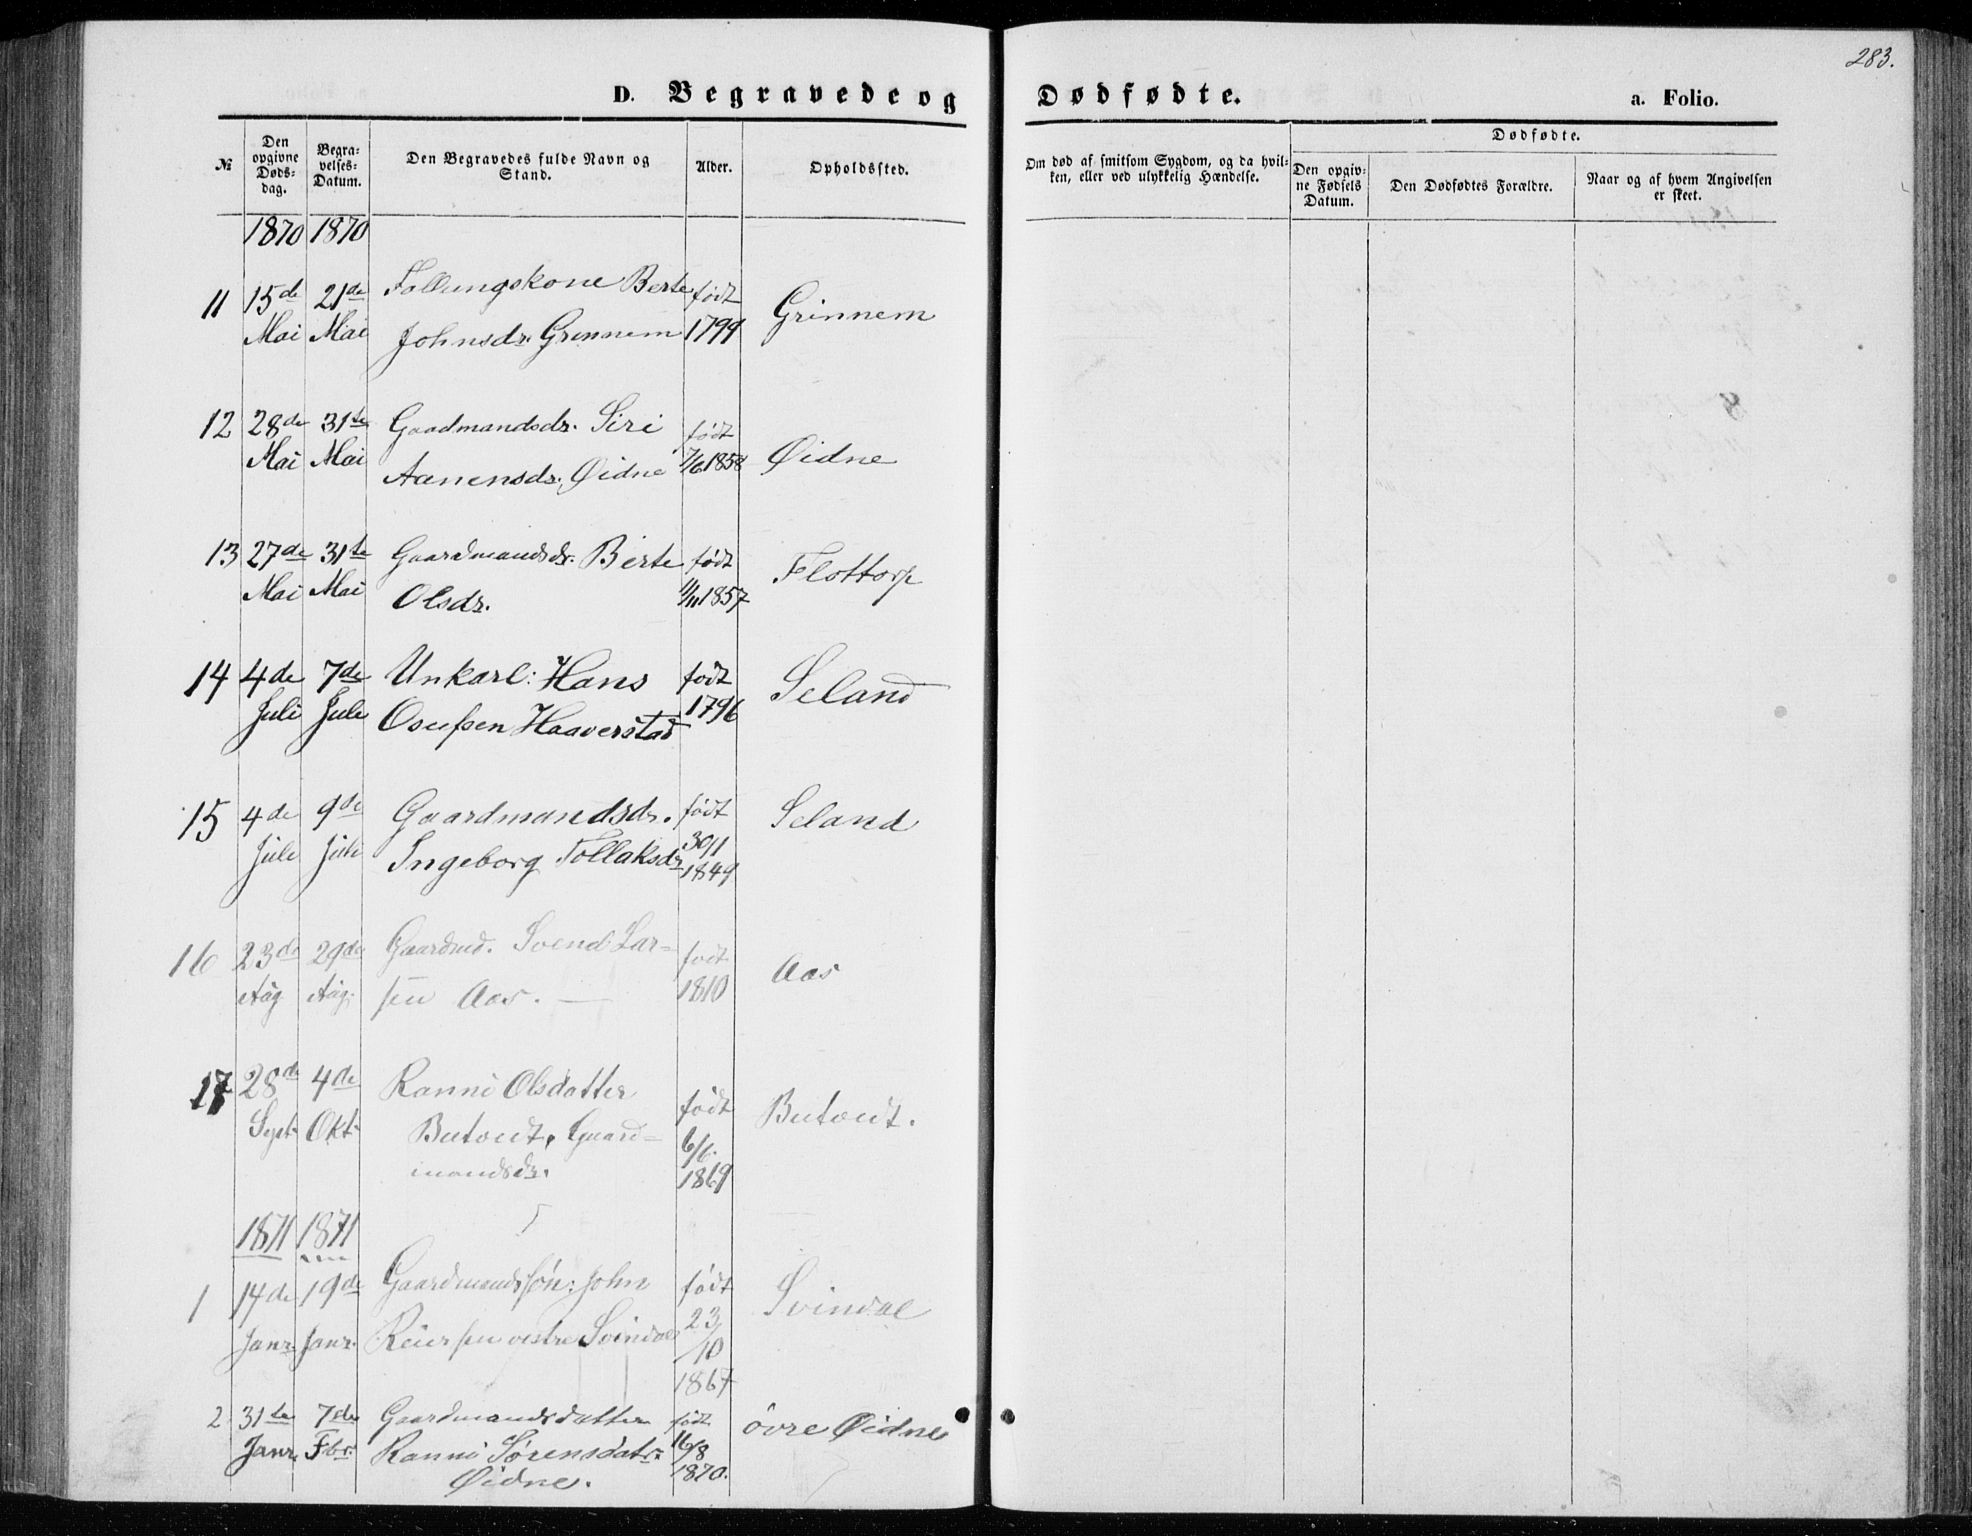 283.
D. Begravede og Dødfødte. a. Folio.
№ Den opgivne Døds-dag. Begra-velses-Datum. Den Begravedes fulde Navn og Stand. Alder. Opholdssted. Om død af smitsom Sygdom, og da hvil-ken, eller ved ulykkelig Hændelse. Dødfødte. Den opgiv-ne Fødsels Datum. Den Dødfødtes Forældre. Naar og af hvem Angivelsen er skeet.
1870 1870
11 15de 21de Follungskone Berte født Grinnem
Mai Mai Johnsdr. Grinnem 1799
12 28de 31te Gaadmandsdr. Siri født Øidne
Mai Mai Aanensdr. Øidne 7/6 1858
13 27de 31te Gaardmandsdr. Berte født Flottorp
Mai Mai Olsdr. 1857
14 4de 7de Unkarl: Hans født Seland
Juli Juli Osufsen Haaverstad 1796
15 4de 9de Gaardmandsdr. født Seland
Juli Juli Ingeborg Tollaksdr 30/1
1849
16 23de 29de Gaardmd. Svend Lar= født Aas
Aug Aug. sen Aas. — 1810
17 28de 4de Ranni Olsdatter født Butvedt.
Sept. Okt. Butvedt, Gaard= 6/6.
mandsdr. 1869
1871 1871
1 14de 19de Gaardmandssøn: John født Svindal
Janr. Janr. Reiersen vestre Svindal 23/10
1867
2 31te 7de Gaardmandsdatter født øvre Øidne
Janr. Fbr. Ranni Sørensdatr. 16/8
Øidne. 1870.